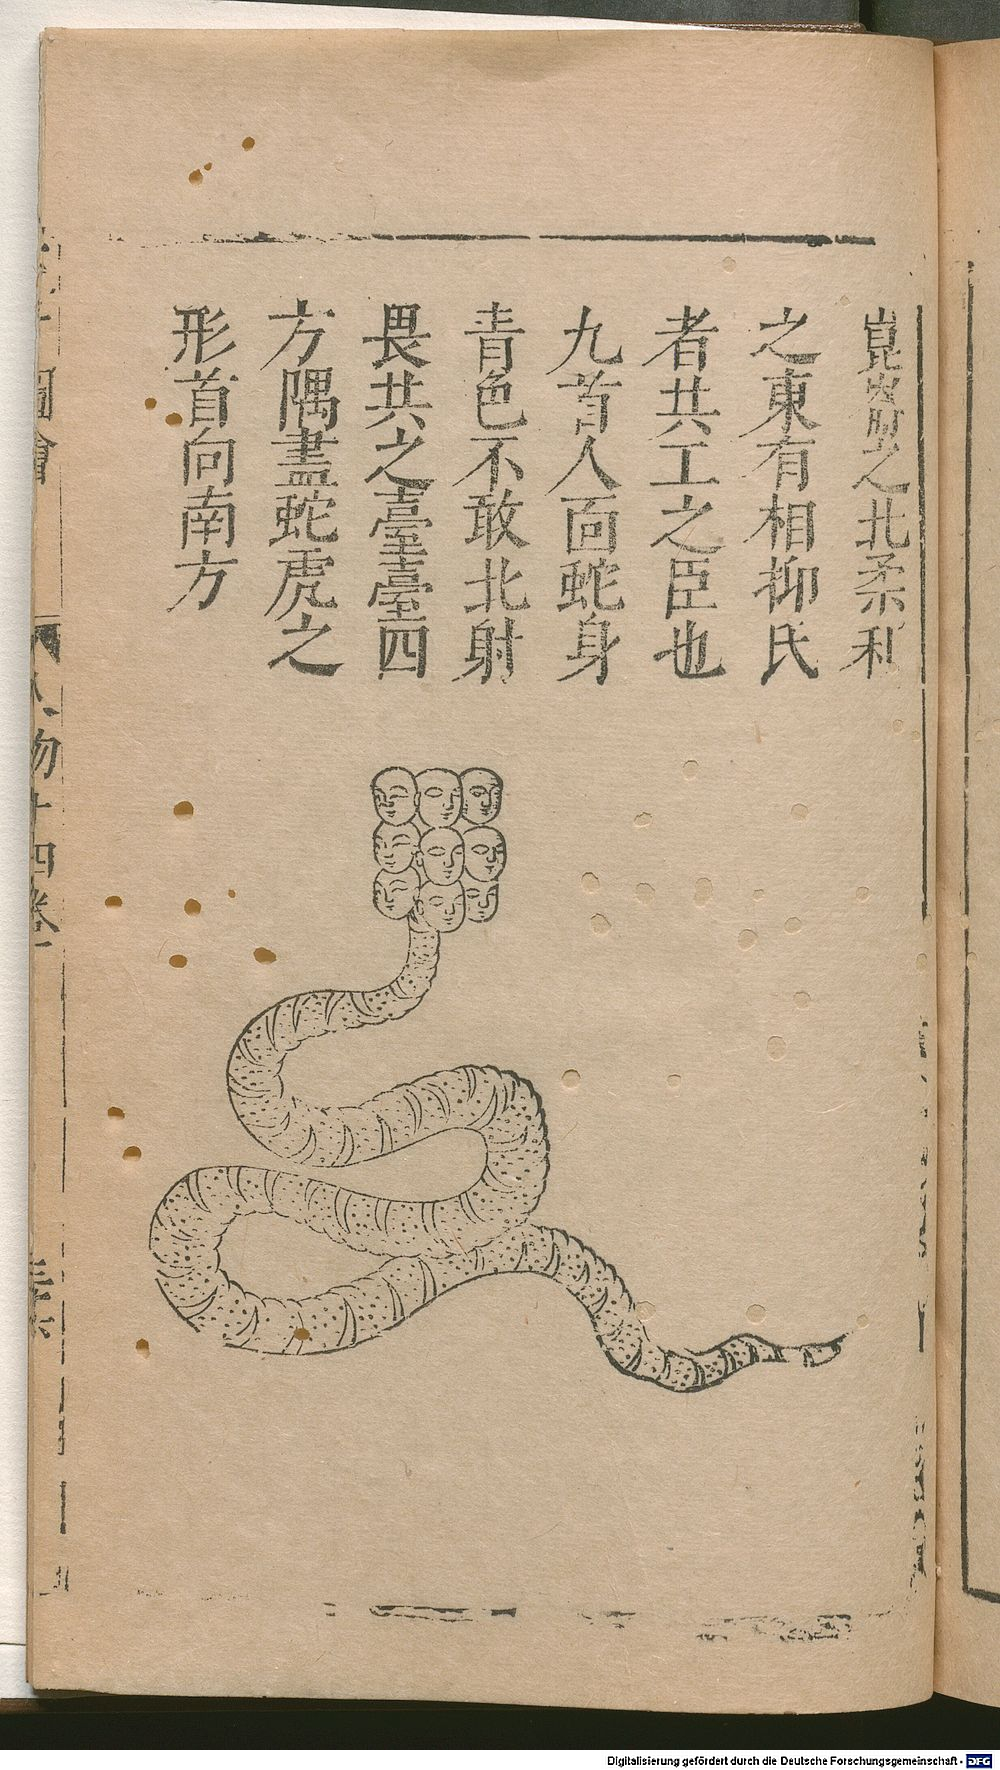 崑崙之北柔利
之東有相抑氏
者共工之臣也
九首人面蛇身
青色不敢北射
畏共之臺臺四
方隅畫蛇虎之
形首向南方
圖會
人物十四卷
Digitalisierung gefördert durch die Deutsche Forschungsgemeinschaft - DFG